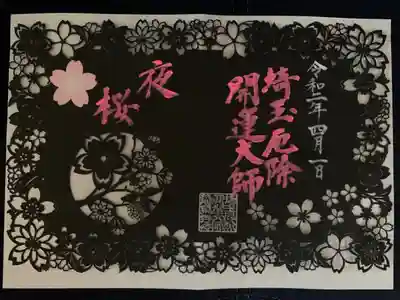 令和二年四月一日
埼玉厄除
開運大師
夜
桜